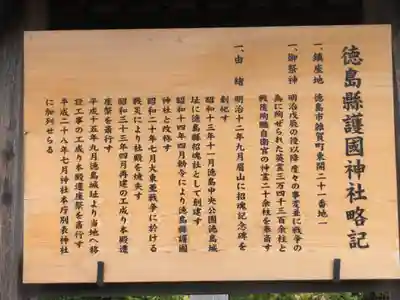 徳島縣護國神社略記
一、鎮座地　徳島市雑賀町東開二十一番地一
一、御祭神　明治戊辰の役以降度々の事変並に戦争の
為に殉ぜられた英霊三万四千三百余柱と
戦後殉職自衛官の神霊二十余柱を奉斎す
一、由　緒　明治十二年九月眉山に招魂記念碑を
創祀す
昭和十三年十一月徳島中央公園徳島城
址に徳島縣招魂社として創建す
昭和十四年四月新令により徳島縣護國
神社と改称す
昭和二十年七月大東亜戦争に於ける
戦災により社殿を焼失す
昭和三十三年四月再建の工成り本殿遷
座祭を斎行す
平成十五年九月徳島城址より当地へ移
設工事の工成り本殿遷座祭を斎行す
平成二十八年七月神社本庁別表神社
に加列せらる